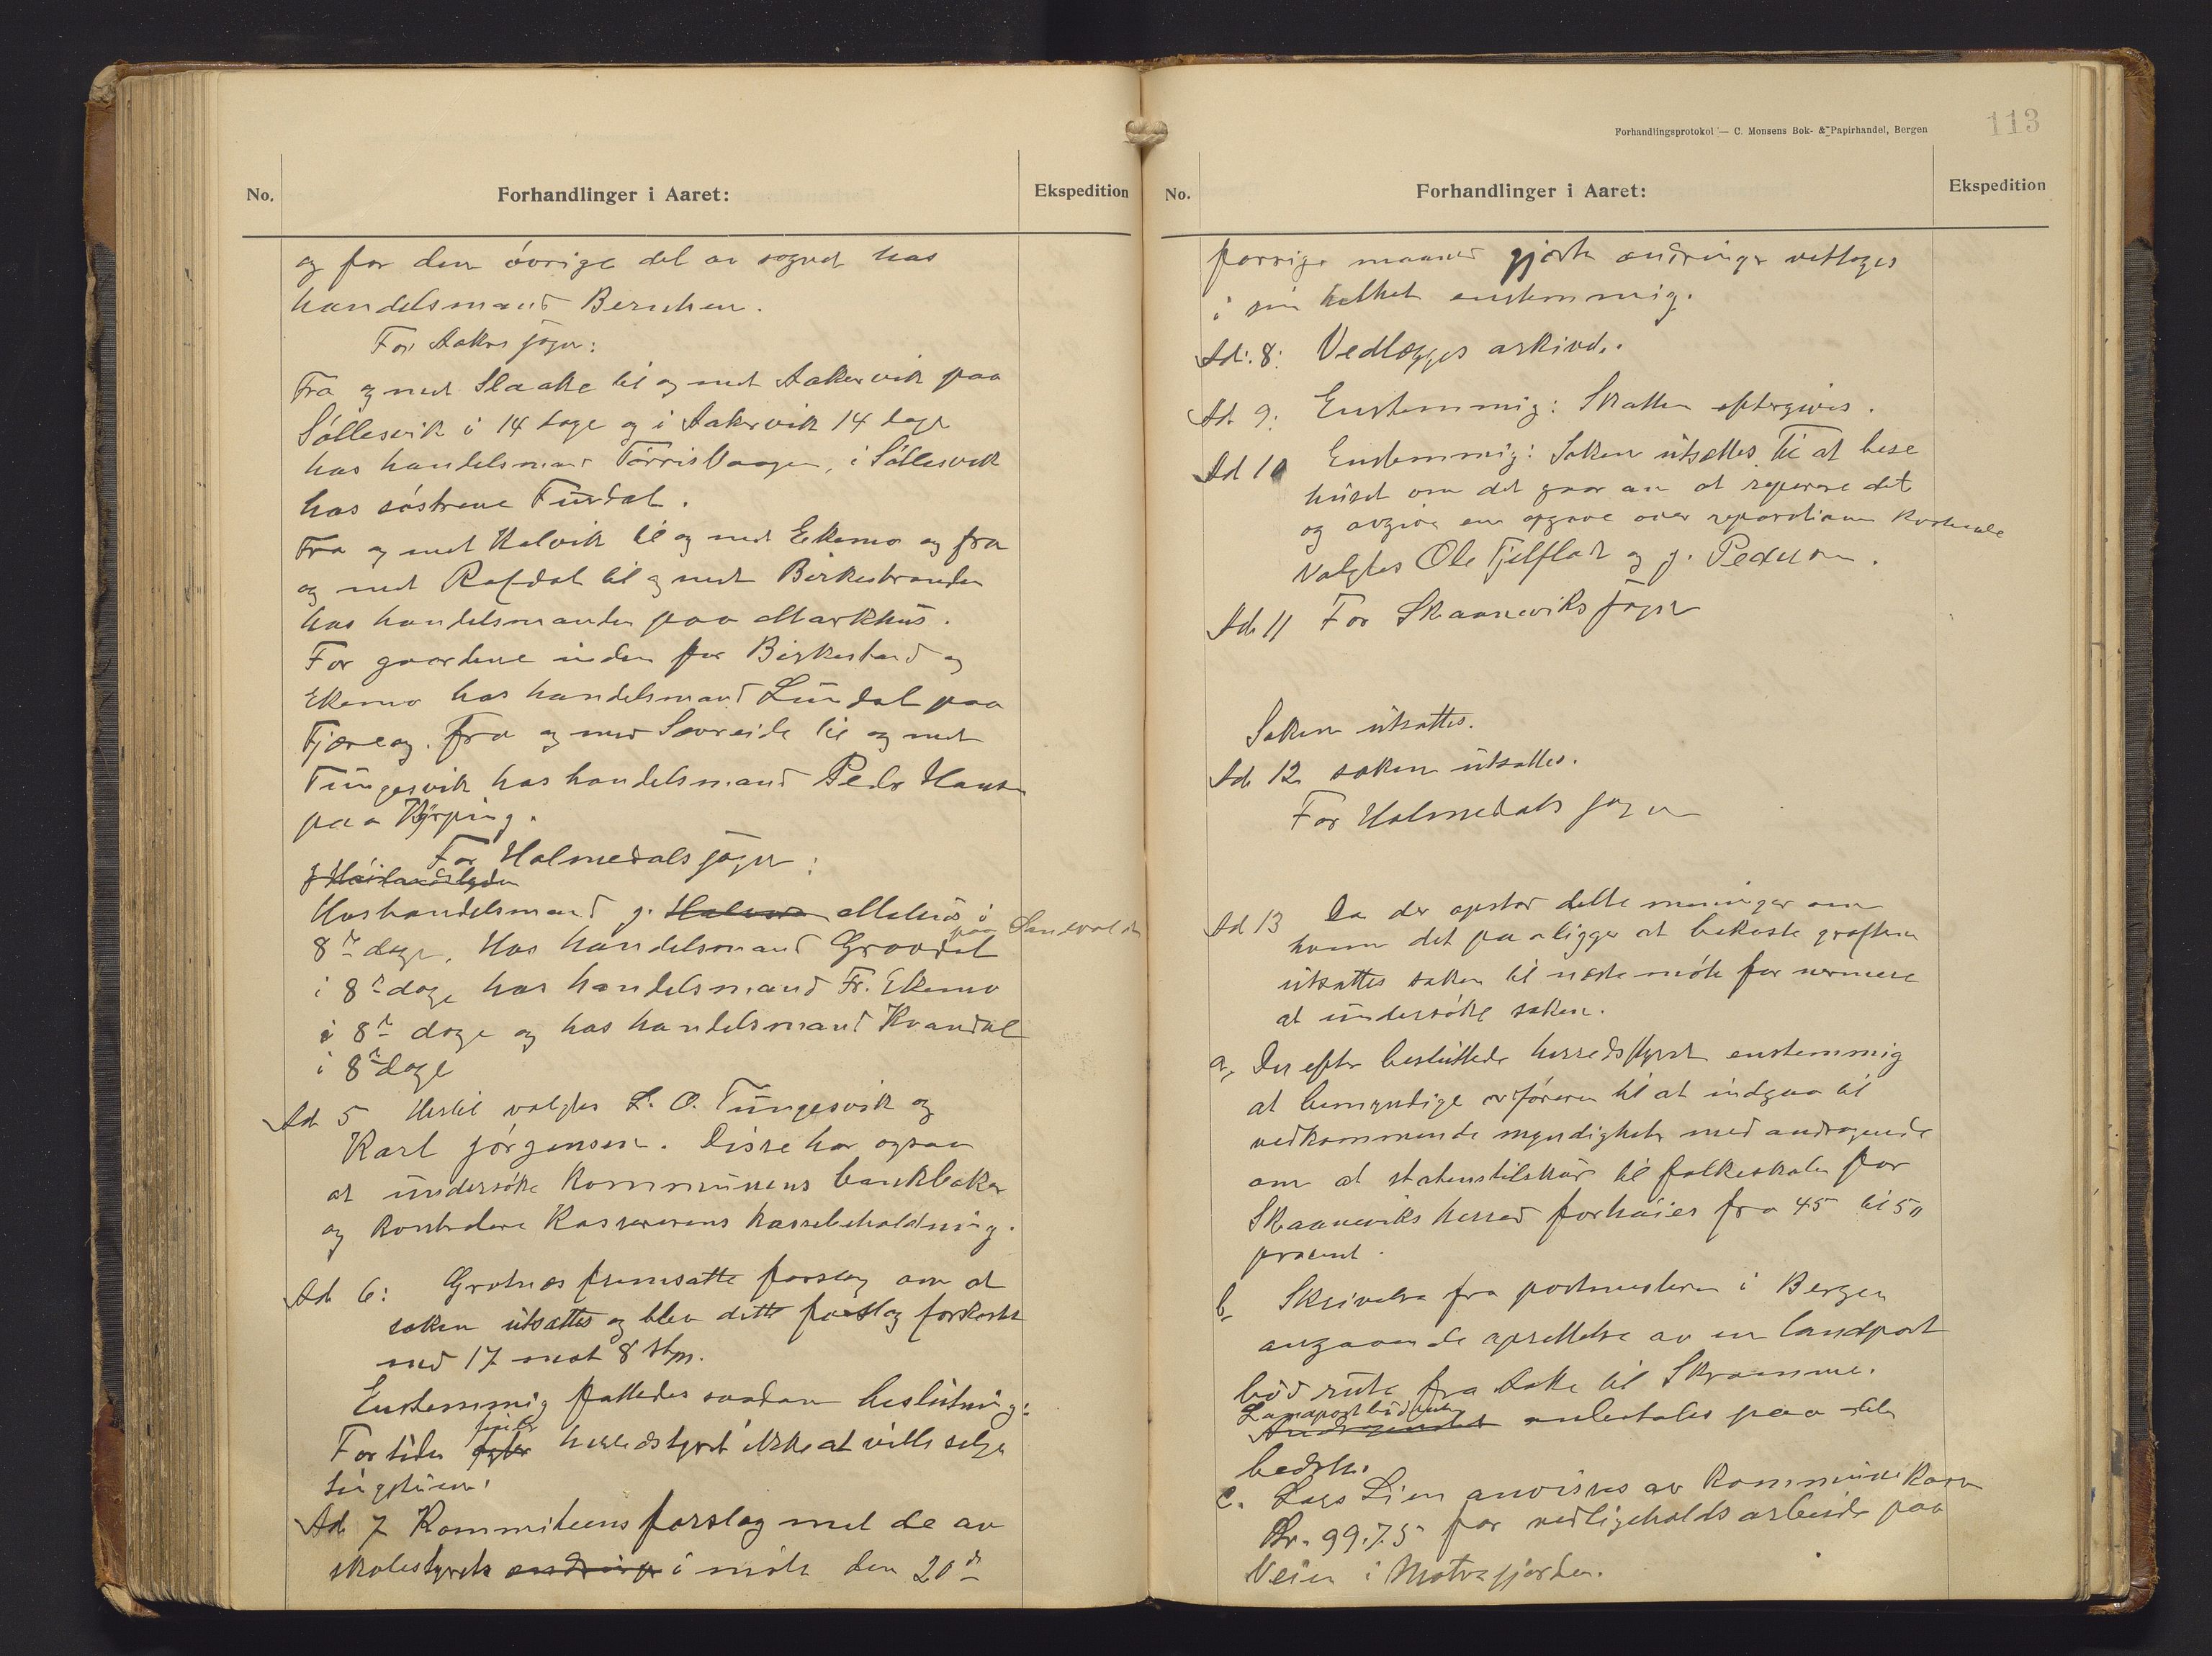 No.
Forhandlinger i Aaret:
Ekspedition
og for den övrige del av sognet hos
handelsmand Berntsen.
For Aakre sogn:
Fra og med Slaake til og med Aakervik paa
Söllesvik i 14 dage og i Aakrvik 14 dage
hos handelsmand Törris Vaagen, i Söllesvik
hos söstrene Furdal.
Fra og med Kalvik til og med Ekemo og fra
og med Rafdal til og med Birkestranden
hos handelsmanden paa Markhus.
For gaardene inden for Birkestrand og
Ekemo hos handelsmand Lundal paa
Fjære og. fra og med Sævreide til og med
Tungesvik hos handelsmand Peder Hansen
paa Kyrping.
For Holmedals sogn:
Hos handelsmand J. Melhus i
8te dage, Hos handelsmand Gravdal paa Sandvolden
i 8te dage hos handelsmand Fr. Ekemo
i 8te dage og hos handelsmand Kvandal
i 8te dage
Ad 5 Hertil valgtes L. O. Tungesvik og
Karl Jörgensen. Disse har ogsaa
at undersöke kommunens bankböker
og kontrolere kassererens kassebeholdning.
Ad 6: Grotnes fremsatte forslag om at
saken utsættes og blev dette forslag forkastet
med 17 mot 8 stm.
Enstemmig fattedes saadan beslutning:
For tiden finder herredstyret ikke at ville selge
tingstuen.
Ad 7 Kommiteens forslag med de av
skolestyrets endringer i möte den 20de
Forhandlingsprotokol — C. Monsens Bok- & Papirhandel, Bergen
113
No.
Forhandlinger i Aaret:
Ekspedition
forrige maaned gjorte ændringer vettoges
i sin helhet enstemmig.
Ad: 8: Vedlægges arkivet.
Ad. 9: Enstemmig: Skatten eftergives.
Ad 10 Enstemmig: Saken utsættes. Til at bese
huset om det gaar an at reparere det
og avgive en opgave over reparationens kostende
valgtes Ole Fjelflat og J. Pederson.
Ad 11 For Skaaneviks sogn
Saken utsattes.
Ad 12 saken utsattes.
For Holmedals sogn
Ad 13 Da der opstod delte meninger om
hvem det paaligger at bekoste grøften
utsattes saken til neste möte for nermere
at undersöke saken.
a, Der efter besluttede herredsstyret enstemmig
at bemyndige ordföreren til at indgaa til
vedkommende myndigheter med andragende
om at statenstilskud til folkeskolen for
Skaaneviks herred forhöies fra 45 til 50
procent.
b, Skrivelse fra postmesteren i Bergen
angaaende oprettelse av en landpost
bud rute fra Aakre til Skromme.
Landpostbudruten
Andragendet anbefales paa det
bedste.
c. Lars Lien anvises av kommunekassen
Kr. 99.75 for vedligeholdsarbeide paa
Veien i Matrefjorden.